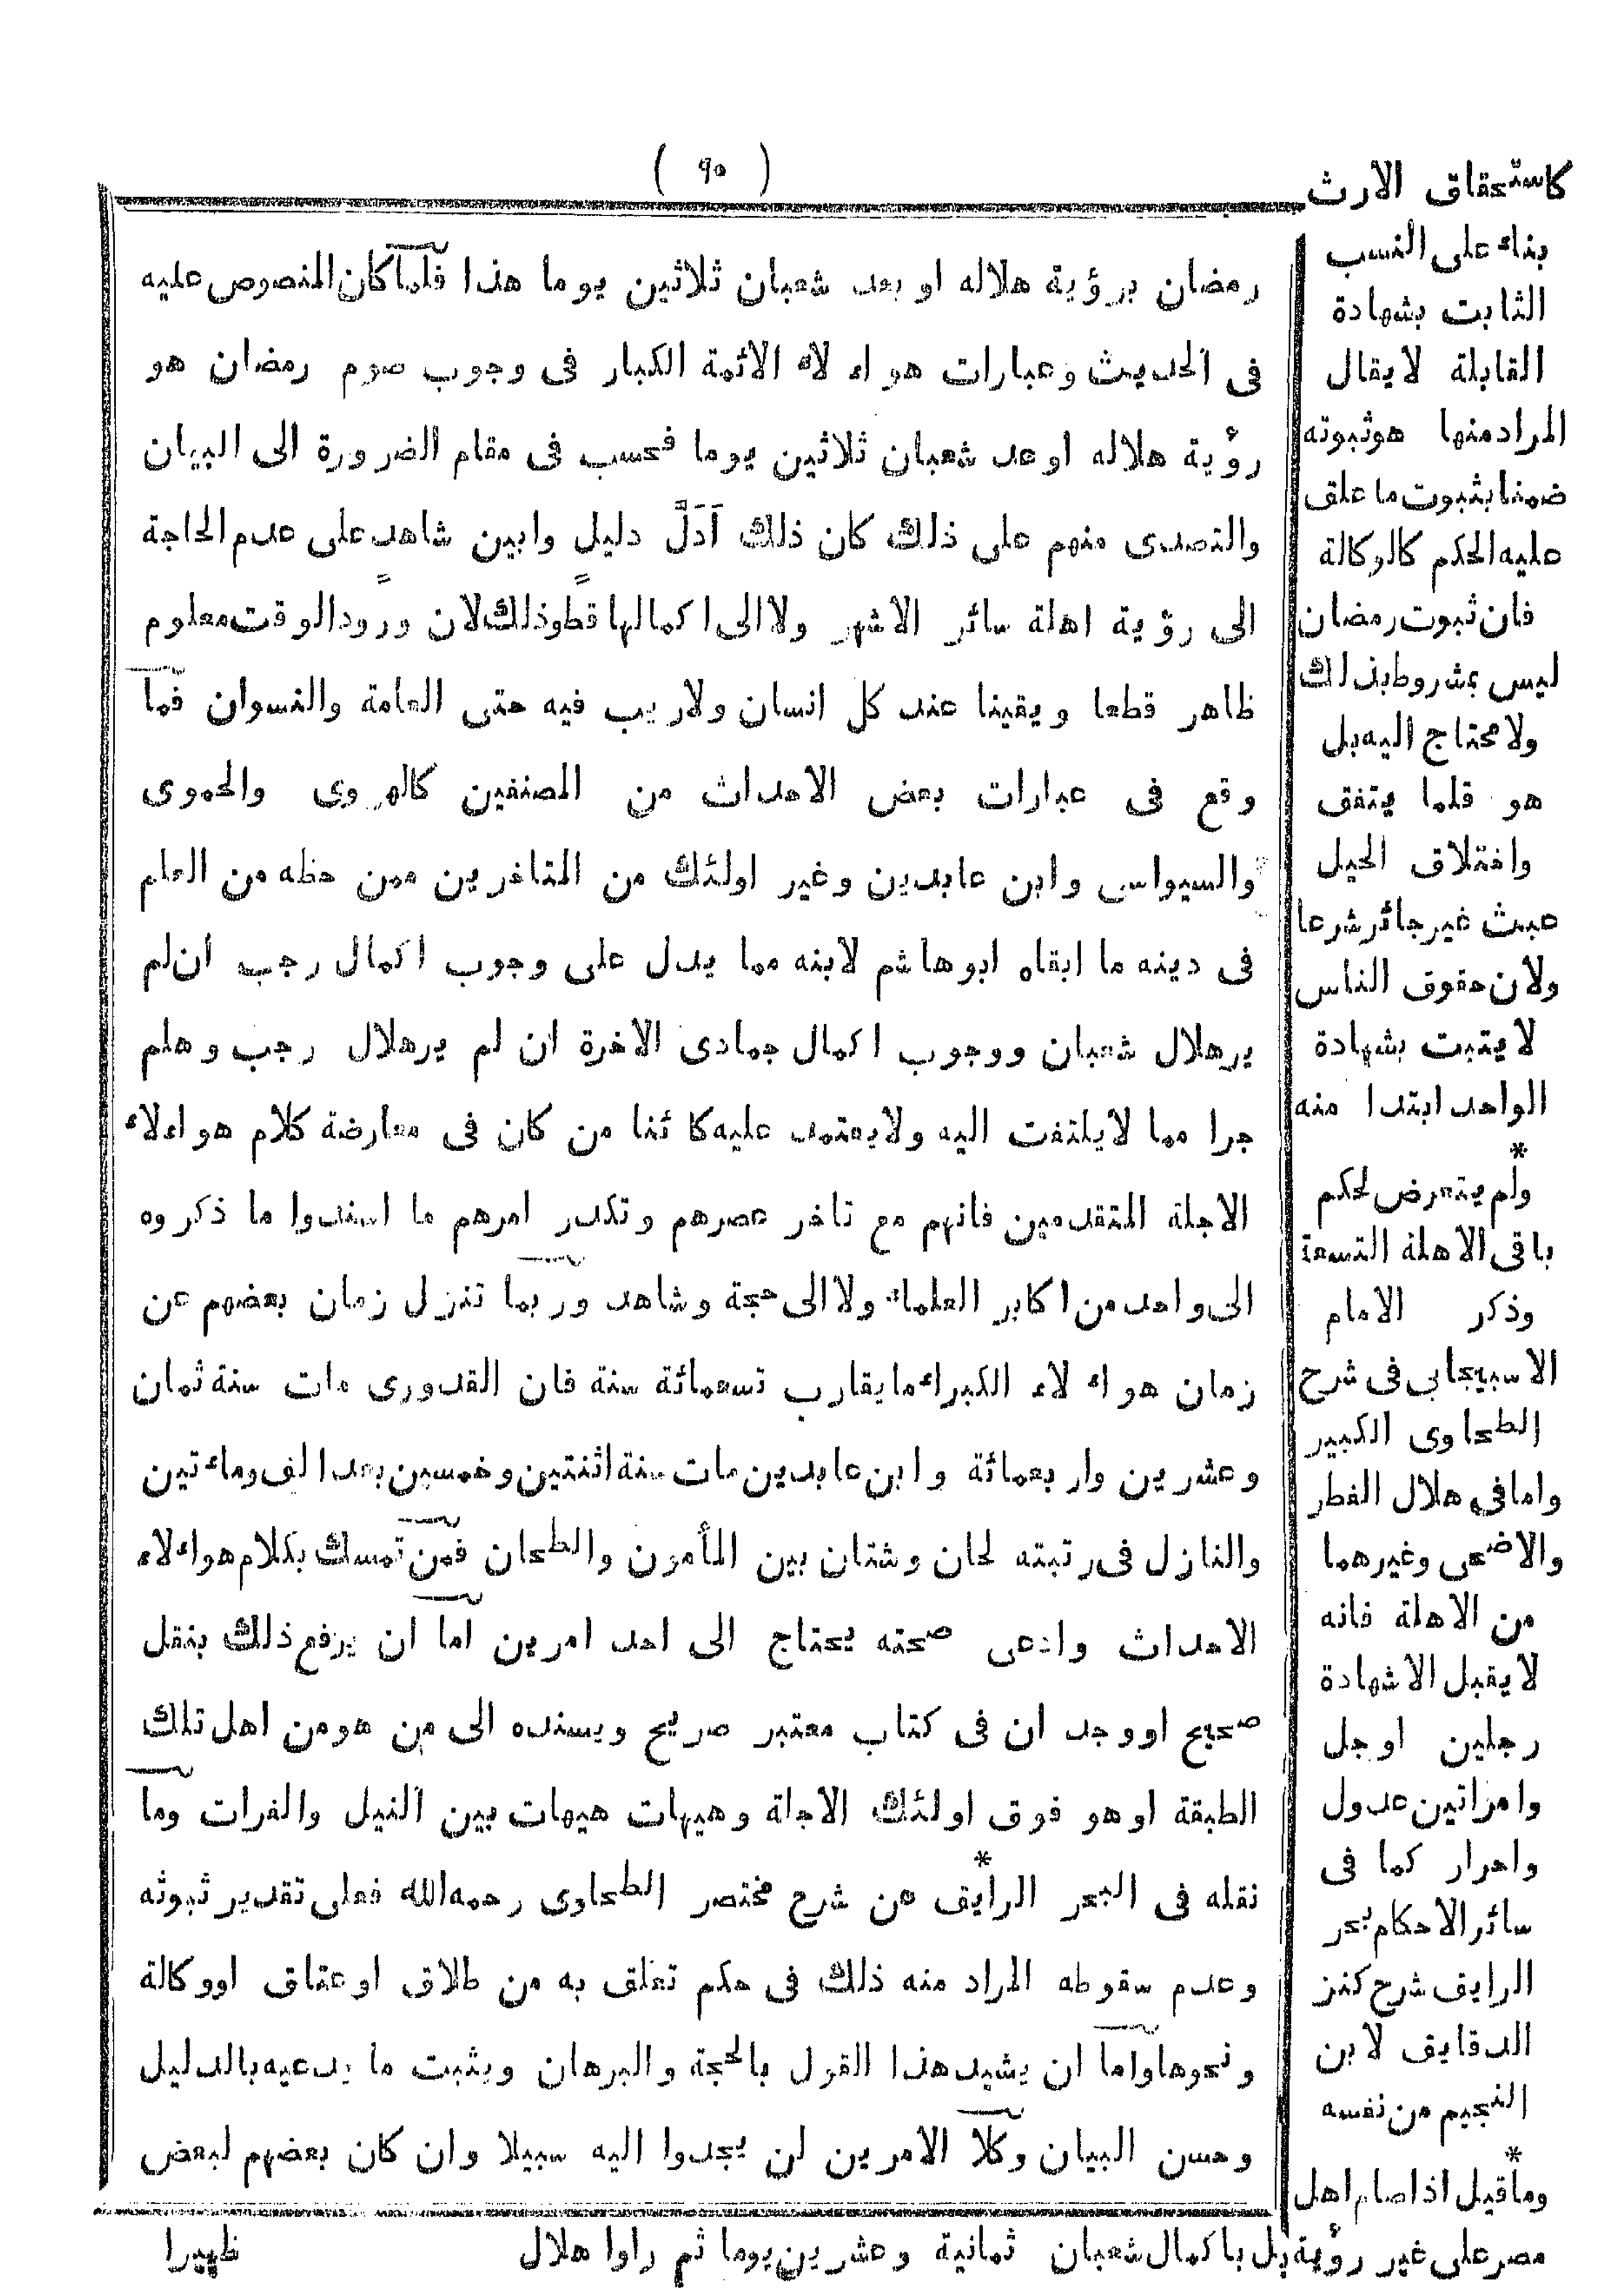 ( ٩٥ )
رمضان برؤية هلاله او بعد شعبان ثلاثين يوما هذا فلما كان المنصوص عليه
فى الحديث وعبارات هواء لاء الائمة الكبار فى وجوب صوم رمضان هو
رؤية هلاله او عد شعبان ثلاثين يوما فحسب فى مقام الضرورة الى البيان
والتصدى منهم على ذلك كان ذلك اَدَلَّ دليلٍ وابين شاهدٍ على عدم الحاجة
الى رؤية اهلة سائر الاشهر ولا الى اكمالها قط وذلك لان ورود الوقت معلوم
ظاهر قطعا ويقينا عند كل انسان ولاريب فيه حتى العامة والنسوان فما
وقع فى عبارات بعض الاحداث من المصنفين كالهروى والحموى
والسيواسى وابن عابدين وغير اولئك من المتاخرين ممن حظه من العلم
فى دينه ما ابقاه ابوهاشم لابنه مما يدل على وجوب اكمال رجب ان لم
يرهلال شعبان ووجوب اكمال جمادى الاخرة ان لم يرهلال رجب وهلم
جرا مما لايلتفت اليه ولايعتمد عليه كائنا من كان فى معارضة كلام هواءلاء
الاجلة المتقدمين فانهم مع تاخر عصرهم وتكدر امرهم ما اسندوا ما ذكروه
الى واحد من اكابر العلماء ولا الى حجة وشاهد وربما تنزل زمان بعضهم عن
زمان هواء لاء الكبراء ما يقارب تسعمائة سنة فان القدورى مات سنة ثمان
وعشرين واربعمائة وابن عابدين مات سنة اثنتين وخمسين بعد الف وماءتين
والنازل فى رتبته لحان وشتان بين المأمون والطحان فمن تمسك بكلام هواءلاء
الاحداث وادعى صحته يحتاج الى احد امرين اما ان يرفع ذلك بنقل
صحيح اووجد ان فى كتاب معتبر صريح ويسنده الى من هو من اهل تلك
الطبقة او هو فوق اولئك الاجلة وهيهات هيهات بين النيل والفرات وما
نقله فى البحر الرايق* عن شرح مختصر الطحاوى رحمه الله فعلى تقدير ثبوته
وعدم سقوطه المراد منه ذلك فى حكم تعلق به من طلاق او عتاق او وكالة
ونحوها واما ان يشيد هذا القول بالحجة والبرهان ويثبت ما يدعيه بالدليل
وحسن البيان وكلا الامرين لن يجدوا اليه سبيلا وان كان بعضهم لبعض
ظهيرا
كاستحقاق الارث
بناء على النسب
الثابت بشهادة
القابلة لايقال
المراد منها هو ثبوته
ضمنا بثبوت ما علق
عليه الحكم كالوكالة
فان ثبوت رمضان
ليس بمشروط بذلك
ولا محتاج اليه بل
هو قلما يتفق
واختلاق الحيل
عبث غير جائر شرعا
ولان حقوق الناس
لايثبت بشهادة
الواحد ابتدا منه
* ولم يتعرض لحكم
باقى الاهلة التسعة
وذكر الامام
الاسبيجابى فى شرح
الطحاوى الكبير
واما فى هلال الفطر
والاضحى وغيرهما
من الاهلة فانه
لايقبل الا شهادة
رجلين او جل
وامراتين عدول
واحرار كما فى
سائر الاحكام بحر
الرايق شرح كنز
الدقايق لابن
النجيم من نفسه
* وما قيل اذا صام اهل
مصر على غير رؤية بل باكمال شعبان ثمانية وعشرين يوما ثم راوا هلال